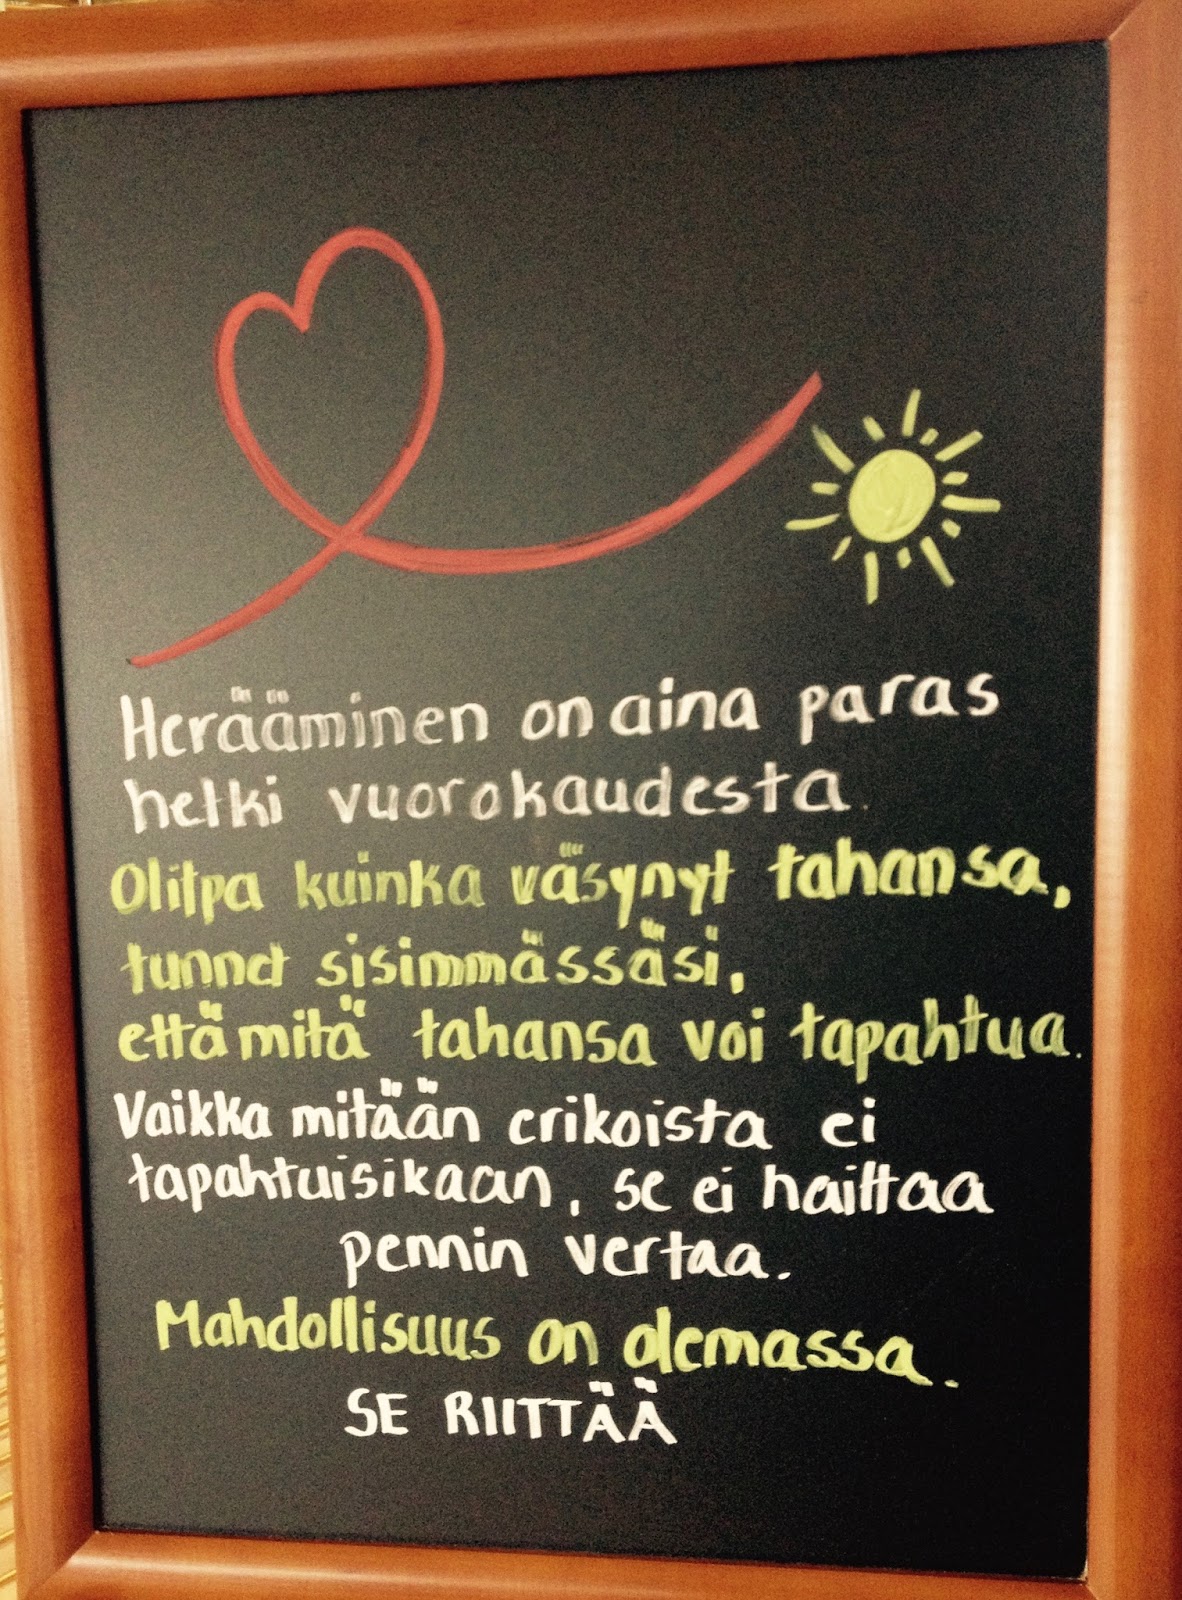 Herääminen on aina paras
hetki vuorokaudesta.
Olitpa kuinka väsynyt tahansa,
tunnet sisimmässäsi,
että mitä tahansa voi tapahtua.
Vaikka mitään erikoista ei
tapahtuisikaan, se ei haittaa
pennin vertaa.
Mahdollisuus on olemassa.
SE RIITTÄÄ